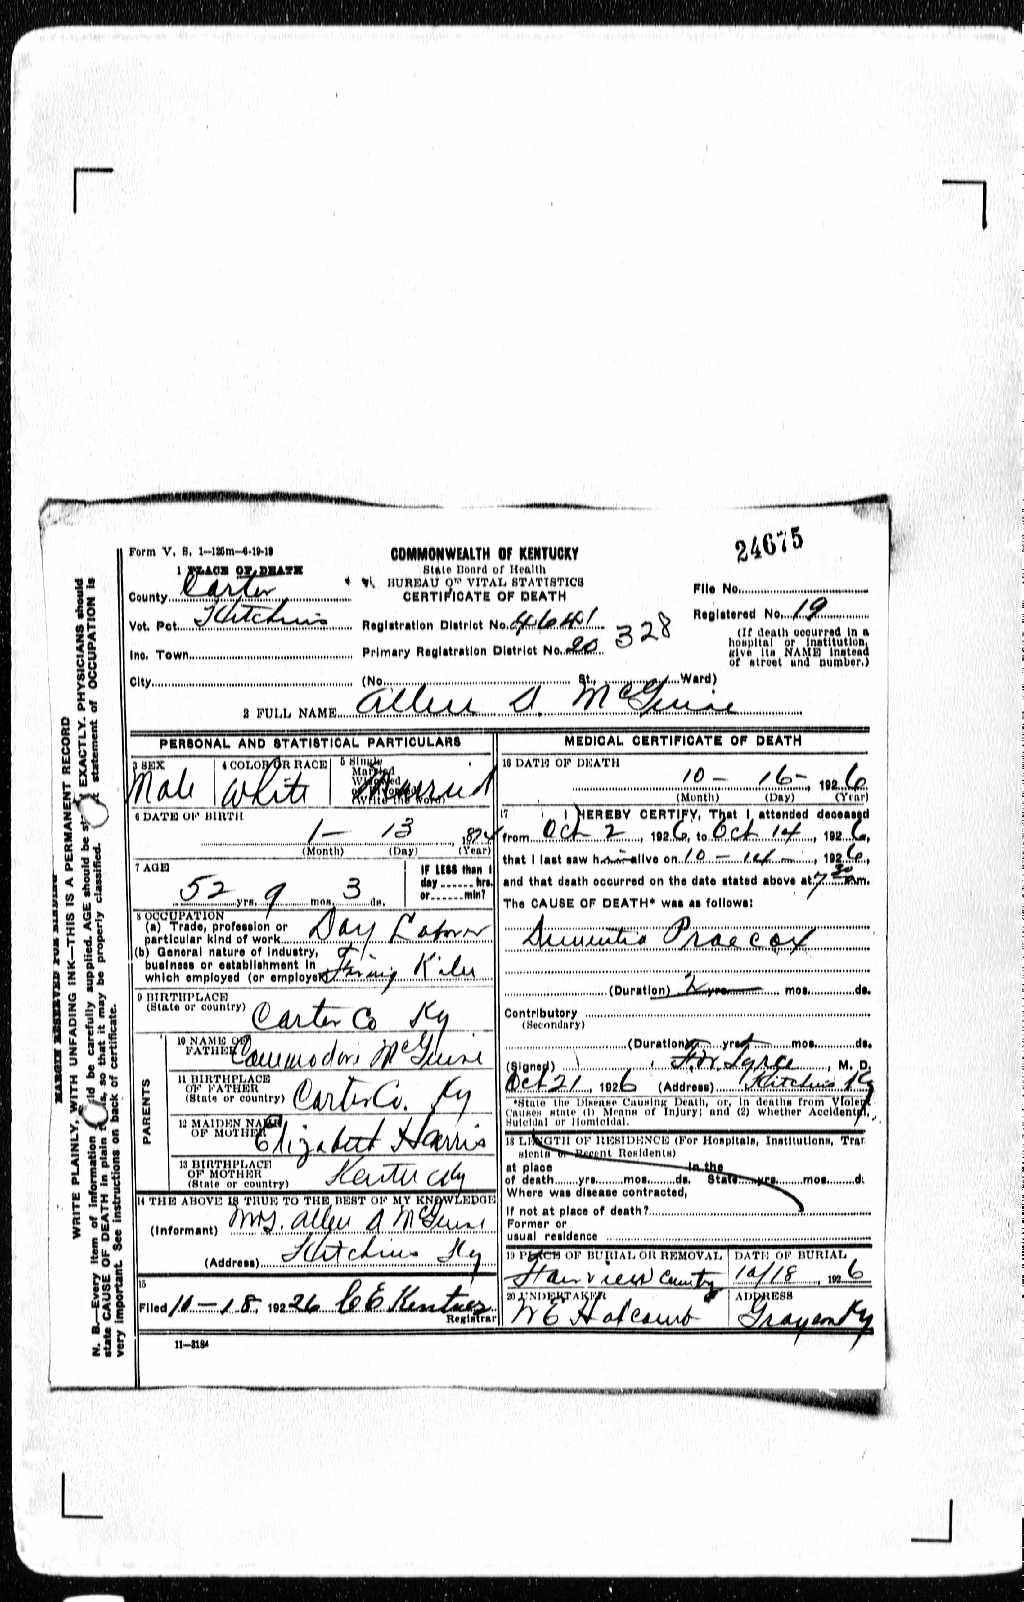 24675
Form V. S. 1—125m—6-19-19
COMMONWEALTH OF KENTUCKY
State Board of Health
BUREAU OF VITAL STATISTICS
CERTIFICATE OF DEATH
1 PLACE OF DEATH
County Carter
Vot. Pct. Hitchins
Inc. Town
City
Registration District No. 4641
Primary Registration District No. 20
328
File No.
Registered No. 19
(If death occurred in a
hospital or institution,
give its NAME instead
of street and number.)
(No. St., Ward)
2 FULL NAME Allen A. McGuire
PERSONAL AND STATISTICAL PARTICULARS
3 SEX
Male
4 COLOR OR RACE
White
5 Single
Married
Widowed
(Write the word)
Married
6 DATE OF BIRTH
1— 13 , 1874
(Month) (Day) (Year)
7 AGE
52 yrs. 9 mos. 3 ds.
IF LESS than 1
day hrs.
or min?
8 OCCUPATION
(a) Trade, profession or
particular kind of work Day Laborer
(b) General nature of industry,
business or establishment in
which employed (or employer) Firing Kiln
9 BIRTHPLACE
(State or country) Carter Co Ky
PARENTS
10 NAME OF
FATHER Commodore McGuire
11 BIRTHPLACE
OF FATHER
(State or country) Carter Co. Ky
12 MAIDEN NAME
OF MOTHER Elizabeth Harris
13 BIRTHPLACE
OF MOTHER
(State or country) Kentucky
14 THE ABOVE IS TRUE TO THE BEST OF MY KNOWLEDGE
(Informant) Mrs. Allen A McGuire
(Address) Hitchins Ky
15
Filed 10—18. 1926 C E Kentner
Registrar
11—3184
MEDICAL CERTIFICATE OF DEATH
16 DATE OF DEATH
10— 16— , 1926
(Month) (Day) (Year)
17 I HEREBY CERTIFY, That I attended deceased
from Oct 2 , 1926, to Oct 14 , 1926,
that I last saw him alive on 10 — 14 — , 1926,
and that death occurred on the date stated above at 7 30 a.m.
The CAUSE OF DEATH* was as follows:
Dementia Praecox
(Duration) 2 yrs. mos. ds.
Contributory
(Secondary)
(Duration) yrs. mos. ds.
(Signed) , M. D.
Oct 21 , 1926 (Address) Hitchins Ky
*State the Disease Causing Death, or, in deaths from Violent
Causes state (1) Means of Injury; and (2) whether Accidental,
Suicidal or Homicidal.
18 LENGTH OF RESIDENCE (For Hospitals, Institutions, Tran
sients or Recent Residents)
at place In the
of death yrs. mos. ds. State yrs. mos. d:
Where was disease contracted,
If not at place of death?
Former or
usual residence
19 PLACE OF BURIAL OR REMOVAL
Fairview County
DATE OF BURIAL
10/18 , 1926
20 UNDERTAKER
W E Holcomb
ADDRESS
Grayson Ky
MARGIN RESERVED FOR BINDING
WRITE PLAINLY, WITH UNFADING INK—THIS IS A PERMANENT RECORD
N. B.—Every item of information should be carefully supplied. AGE should be stated EXACTLY. PHYSICIANS should
state CAUSE OF DEATH in plain terms, so that it may be properly classified. Exact statement of OCCUPATION is
very important. See instructions on back of certificate.